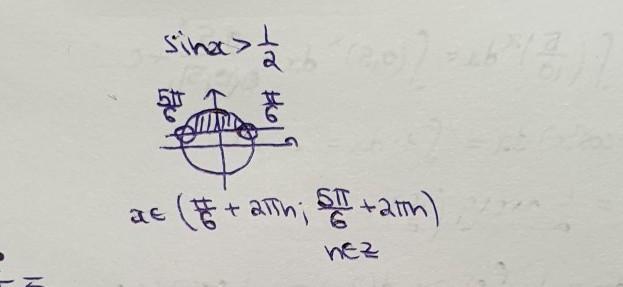 sinx > 1/2
5π/6 π/6
x ∈ (π/6 + 2πn; 5π/6 + 2πn)
n∈Z